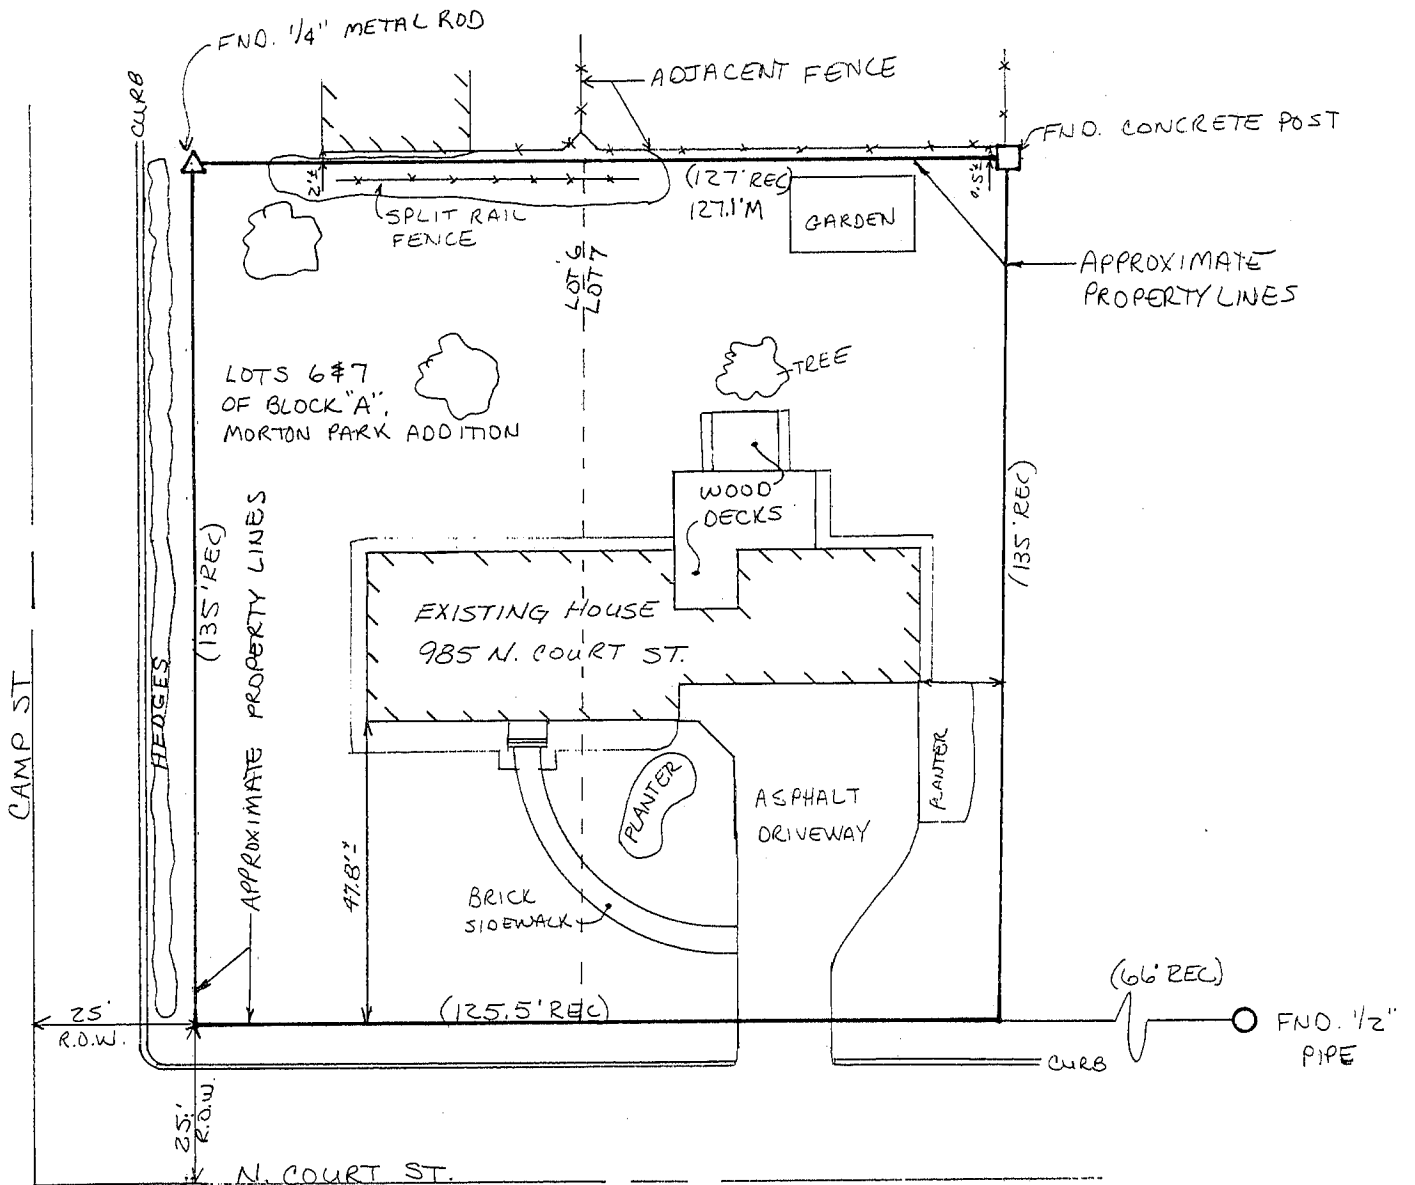 FND. 1/4" METAL ROD
CURB
ADJACENT FENCE
FND. CONCRETE POST
2'±
(127' REC)
127.1'M
0.5'±
SPLIT RAIL
FENCE
GARDEN
LOT 6
LOT 7
APPROXIMATE
PROPERTY LINES
LOTS 6 & 7
OF BLOCK "A",
MORTON PARK ADDITION
TREE
WOOD
DECKS
(135' REC)
(135' REC)
APPROXIMATE PROPERTY LINES
EXISTING HOUSE
985 N. COURT ST.
HEDGES
CAMP ST
PLANTER
PLANTER
ASPHALT
DRIVEWAY
47.8'±
BRICK
SIDEWALK
(125.5' REC)
(66' REC)
25'
R.O.W.
FND. 1/2"
PIPE
CURB
25'
R.O.W.
N. COURT ST.